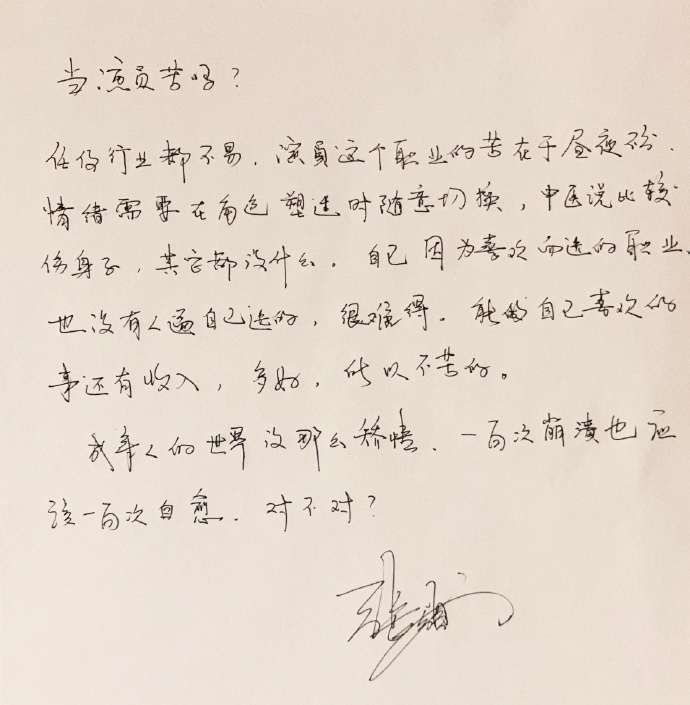 当演员苦吗？
任何行业都不易，演員这个职业的苦在于昼夜不分，
情绪需要在角色塑造时随意切换，中医说比较
伤身子，其它都没什么。自己因为喜欢而选的职业、
也没有人逼自己选的，很难得。能做自己喜欢的
事还有收入，多好，所以不苦的。
成年人的世界没那么矫情，一百次崩溃也应
该一百次自愈，对不对？